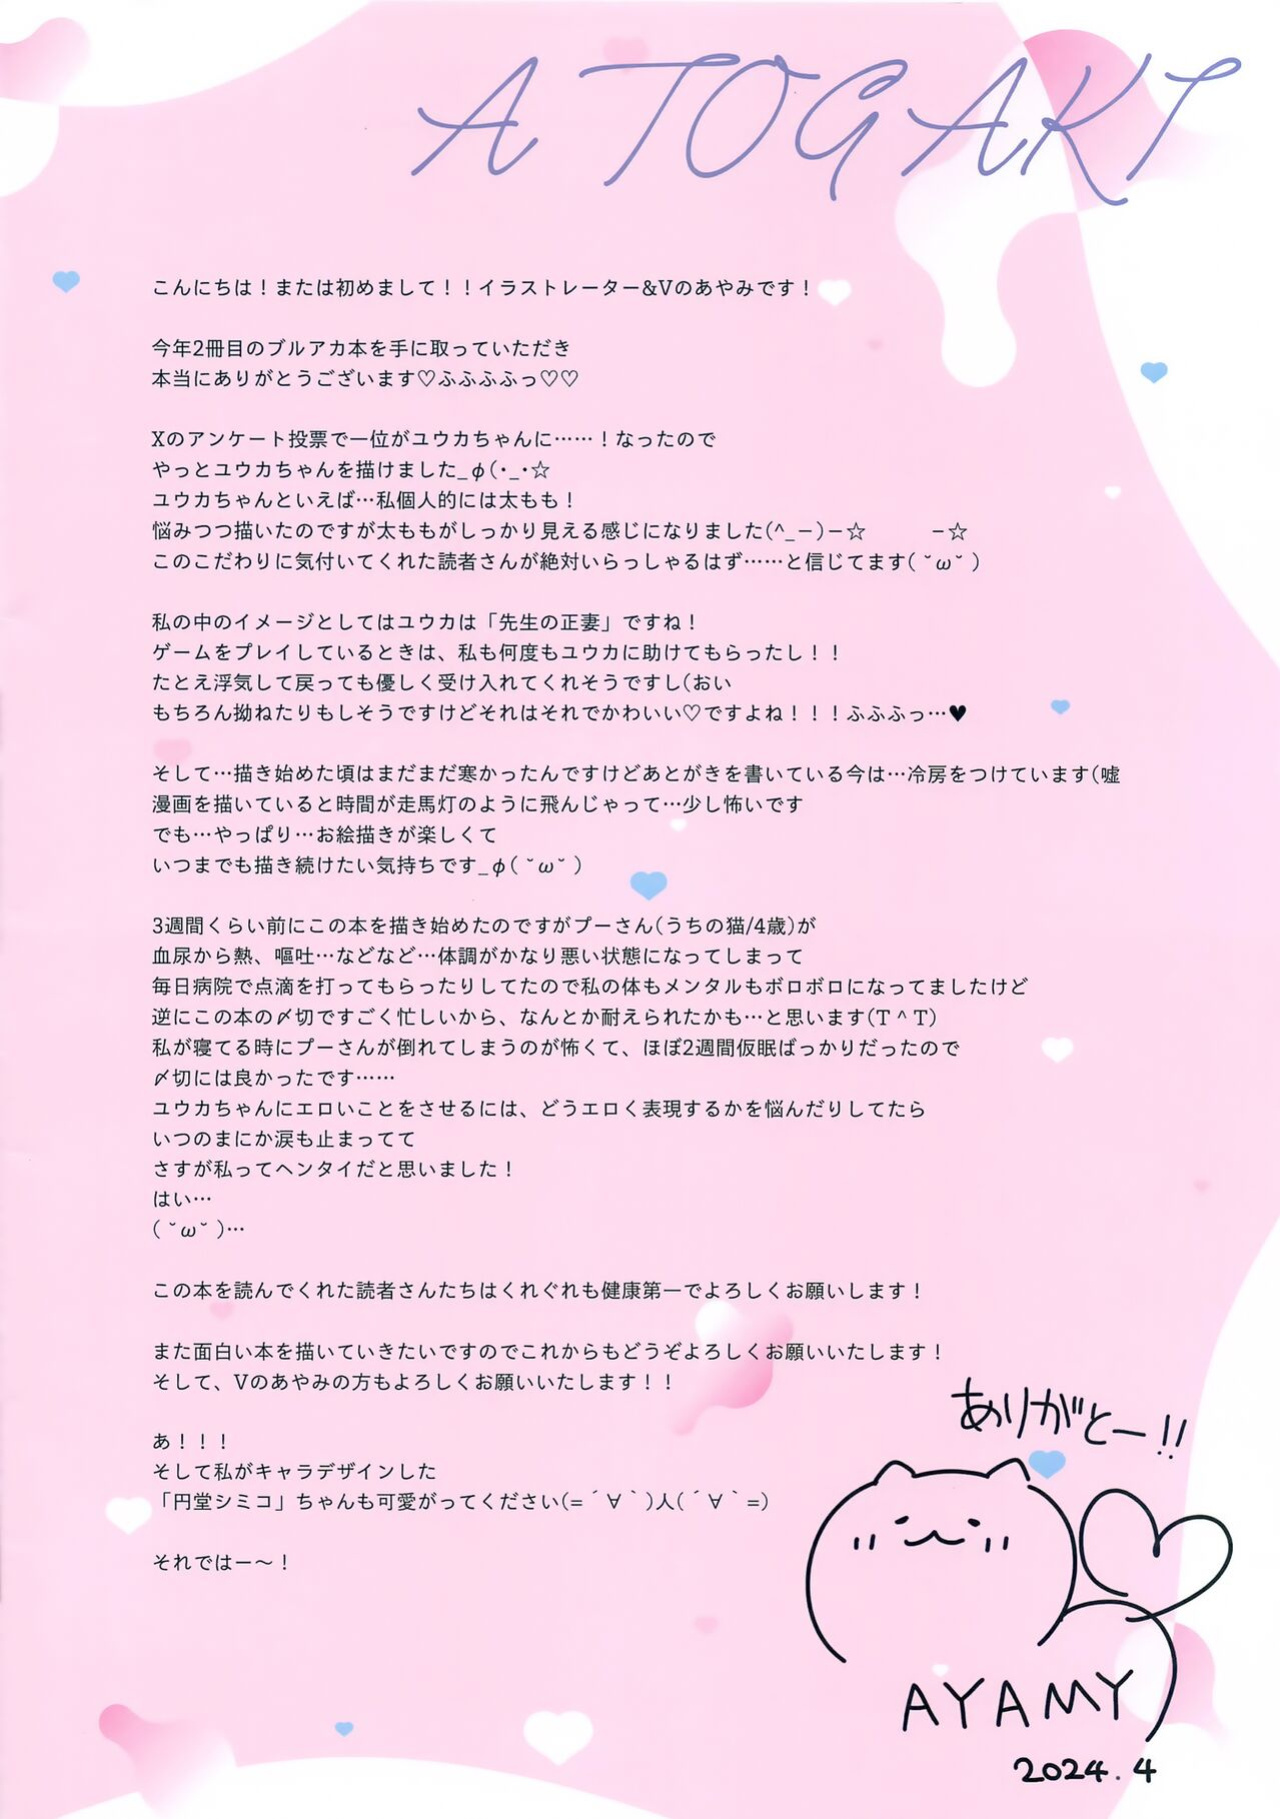 ATOGAKI
こんにちは！または初めまして！！イラストレーター&Vのあやみです！
今年2冊目のブルアカ本を手に取っていただき
本当にありがとうございます♡ふふふふっ♡♡
Xのアンケート投票で一位がユウカちゃんに……！なったので
やっとユウカちゃんを描けました_φ(･_･☆
ユウカちゃんといえば…私個人的には太もも！
悩みつつ描いたのですが太ももがしっかり見える感じになりました(^_−)−☆　　　−☆
このこだわりに気付いてくれた読者さんが絶対いらっしゃるはず……と信じてます( ˘ω˘ )
私の中のイメージとしてはユウカは「先生の正妻」ですね！
ゲームをプレイしているときは、私も何度もユウカに助けてもらったし！！
たとえ浮気して戻っても優しく受け入れてくれそうですし(おい
もちろん拗ねたりもしそうですけどそれはそれでかわいい♡ですよね！！！ふふふっ…♥
そして…描き始めた頃はまだまだ寒かったんですけどあとがきを書いている今は…冷房をつけています(嘘
漫画を描いていると時間が走馬灯のように飛んじゃって…少し怖いです
でも…やっぱり…お絵描きが楽しくて
いつまでも描き続けたい気持ちです_φ( ˘ω˘ )
3週間くらい前にこの本を描き始めたのですがプーさん(うちの猫/4歳)が
血尿から熱、嘔吐…などなど…体調がかなり悪い状態になってしまって
毎日病院で点滴を打ってもらったりしてたので私の体もメンタルもボロボロになってましたけど
逆にこの本の〆切ですごく忙しいから、なんとか耐えられたかも…と思います(T ^ T)
私が寝てる時にプーさんが倒れてしまうのが怖くて、ほぼ2週間仮眠ばっかりだったので
〆切には良かったです……
ユウカちゃんにエロいことをさせるには、どうエロく表現するかを悩んだりしてたら
いつのまにか涙も止まってて
さすが私ってヘンタイだと思いました！
はい…
( ˘ω˘ )…
この本を読んでくれた読者さんたちはくれぐれも健康第一でよろしくお願いします！
また面白い本を描いていきたいですのでこれからもどうぞよろしくお願いいたします！
そして、Vのあやみの方もよろしくお願いいたします！！
あ！！！
そして私がキャラデザインした
「円堂シミコ」ちゃんも可愛がってください(=´∀｀)人(´∀｀=)
それではー〜！
ありがとー!!
AYAMY
2024.4